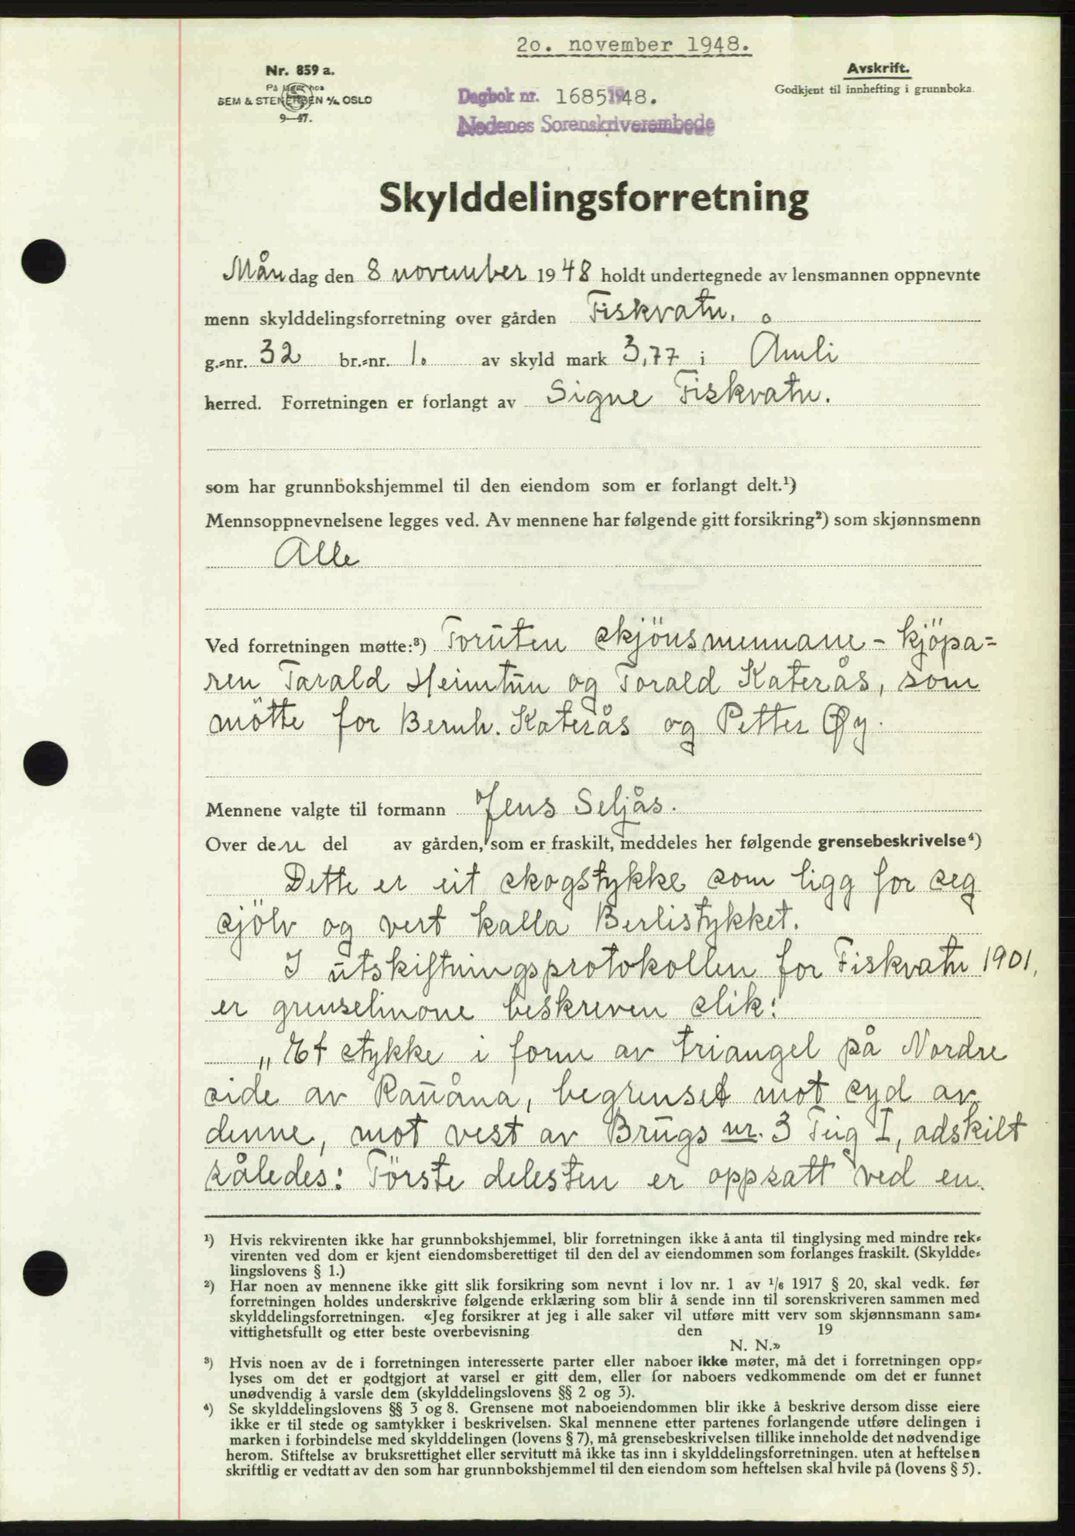 20. november 1948.
Nr. 859 a.
På lager hos
SEM & STENERSEN A/S OSLO
9—47.
Dagbok nr. 1685 1948.
Nedenes Sorenskriverembede
Avskrift.
Godkjent til innhefting i grunnboka.
Skylddelingsforretning
Måndag den 8 november 1948 holdt undertegnede av lensmannen oppnevnte
menn skylddelingsforretning over gården Fiskvatn,
g.-nr. 32 br.-nr. 1. av skyld mark 3,77 i Åmli
herred. Forretningen er forlangt av Signe Fiskvatn.
som har grunnbokshjemmel til den eiendom som er forlangt delt.¹)
Mennsoppnevnelsene legges ved. Av mennene har følgende gitt forsikring²) som skjønnsmenn
Alle
Ved forretningen møtte:³) Foruten skjönsmennane - kjöpa-
ren Tarald Heimtun og Torald Katerås, som
mötte for Bernh. Katerås og Petter Øy.
Mennene valgte til formann Jens Seljås.
Over den del av gården, som er fraskilt, meddeles her følgende grensebeskrivelse⁴)
Dette er eit skogstykke som ligg for seg
sjölv og vert kalla Berlistykket.
I utskiftningsprotokollen for Fiskvatn 1901,
er grenselinone beskreven slik:
„Et stykke i form av triangel på Nordre
side av Rauåna, begrenset mot syd av
denne, mot vest av Brugs nr. 3 Teig I, adskilt
således: Förste delesten er oppsatt ved en
¹) Hvis rekvirenten ikke har grunnbokshjemmel, blir forretningen ikke å anta til tinglysing med mindre rek-
virenten ved dom er kjent eiendomsberettiget til den del av eiendommen som forlanges fraskilt. (Skyldde-
lingslovens § 1.)
²) Har noen av mennene ikke gitt slik forsikring som nevnt i lov nr. 1 av 1/6 1917 § 20, skal vedk. før
forretningen holdes underskrive følgende erklæring som blir å sende inn til sorenskriveren sammen med
skylddelingsforretningen. «Jeg forsikrer at jeg i alle saker vil utføre mitt verv som skjønnsmann sam-
vittighetsfullt og etter beste overbevisning den 19
N. N.»
³) Hvis noen av de i forretningen interesserte parter eller naboer ikke møter, må det i forretningen opp-
lyses om det er godtgjort at varsel er gitt dem, eller for naboers vedkommende om det er funnet
unødvendig å varsle dem (skylddelingslovens §§ 2 og 3).
⁴) Se skylddelingslovens §§ 3 og 8. Grensene mot naboeiendommen blir ikke å beskrive dersom disse eiere
ikke er til stede og samtykker i beskrivelsen. Skal mennene etter partenes forlangende utføre delingen i
marken i forbindelse med skylddelingen (lovens § 7), må grensebeskrivelsen tillike inneholde det nødvendige
herom. Stiftelse av bruksrettighet eller servitutt må ikke tas inn i skylddelingsforretningen. uten at heftelsen
skriftlig er vedtatt av den som har grunnbokshjemmel til den eiendom som heftelsen skal hvile på (lovens § 5).